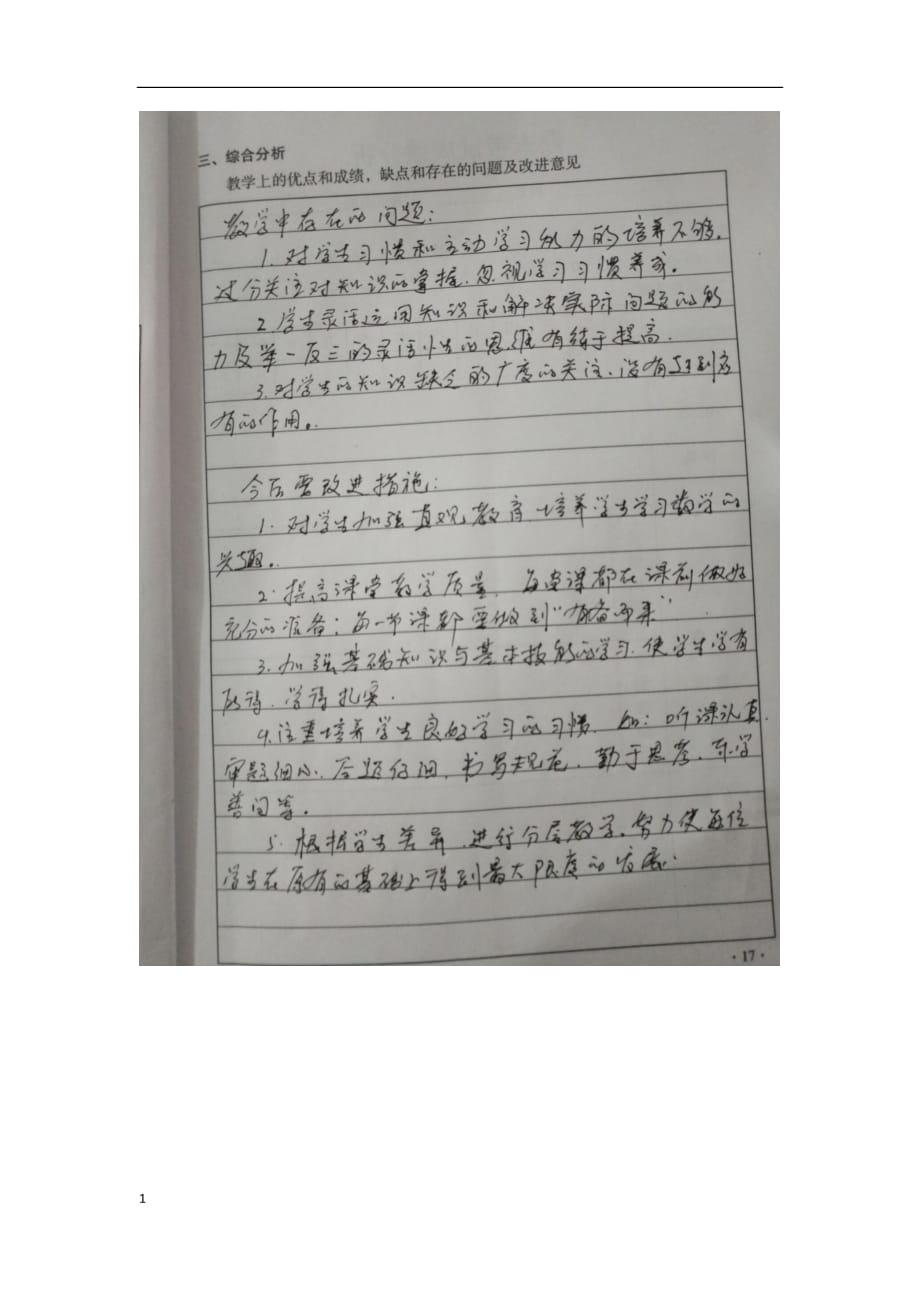 三、综合分析
教学上的优点和成绩，缺点和存在的问题及改进意见
教学中存在的问题：
1.对学生习惯和主动学习能力的培养不够，
过分关注对知识的掌握，忽视学习习惯养成。
2.学生灵活运用知识和解决实际问题的能
力及举一反三的灵活性的思维有待于提高.
3.对学生的知识缺乏的广度的关注，没有起到应
有的作用。
今后要改进措施：
1.对学生加强直观教育，培养学生学习数学的
兴趣。
2.提高课堂教学质量，每堂课都在课前做好
充分的准备；每一节课都要做到“有备而来”.
3.加强基础知识与基本技能的学习，使学生学有
所得，学得扎实.
4.注重培养学生良好学习的习惯，如：听课认真，
审题细心，答题仔细，书写规范，勤于思考，乐学
善问等。
5.根据学生差异，进行分层教学，努力使每位
学生在原有的基础上得到最大限度的发展.
·17·
1